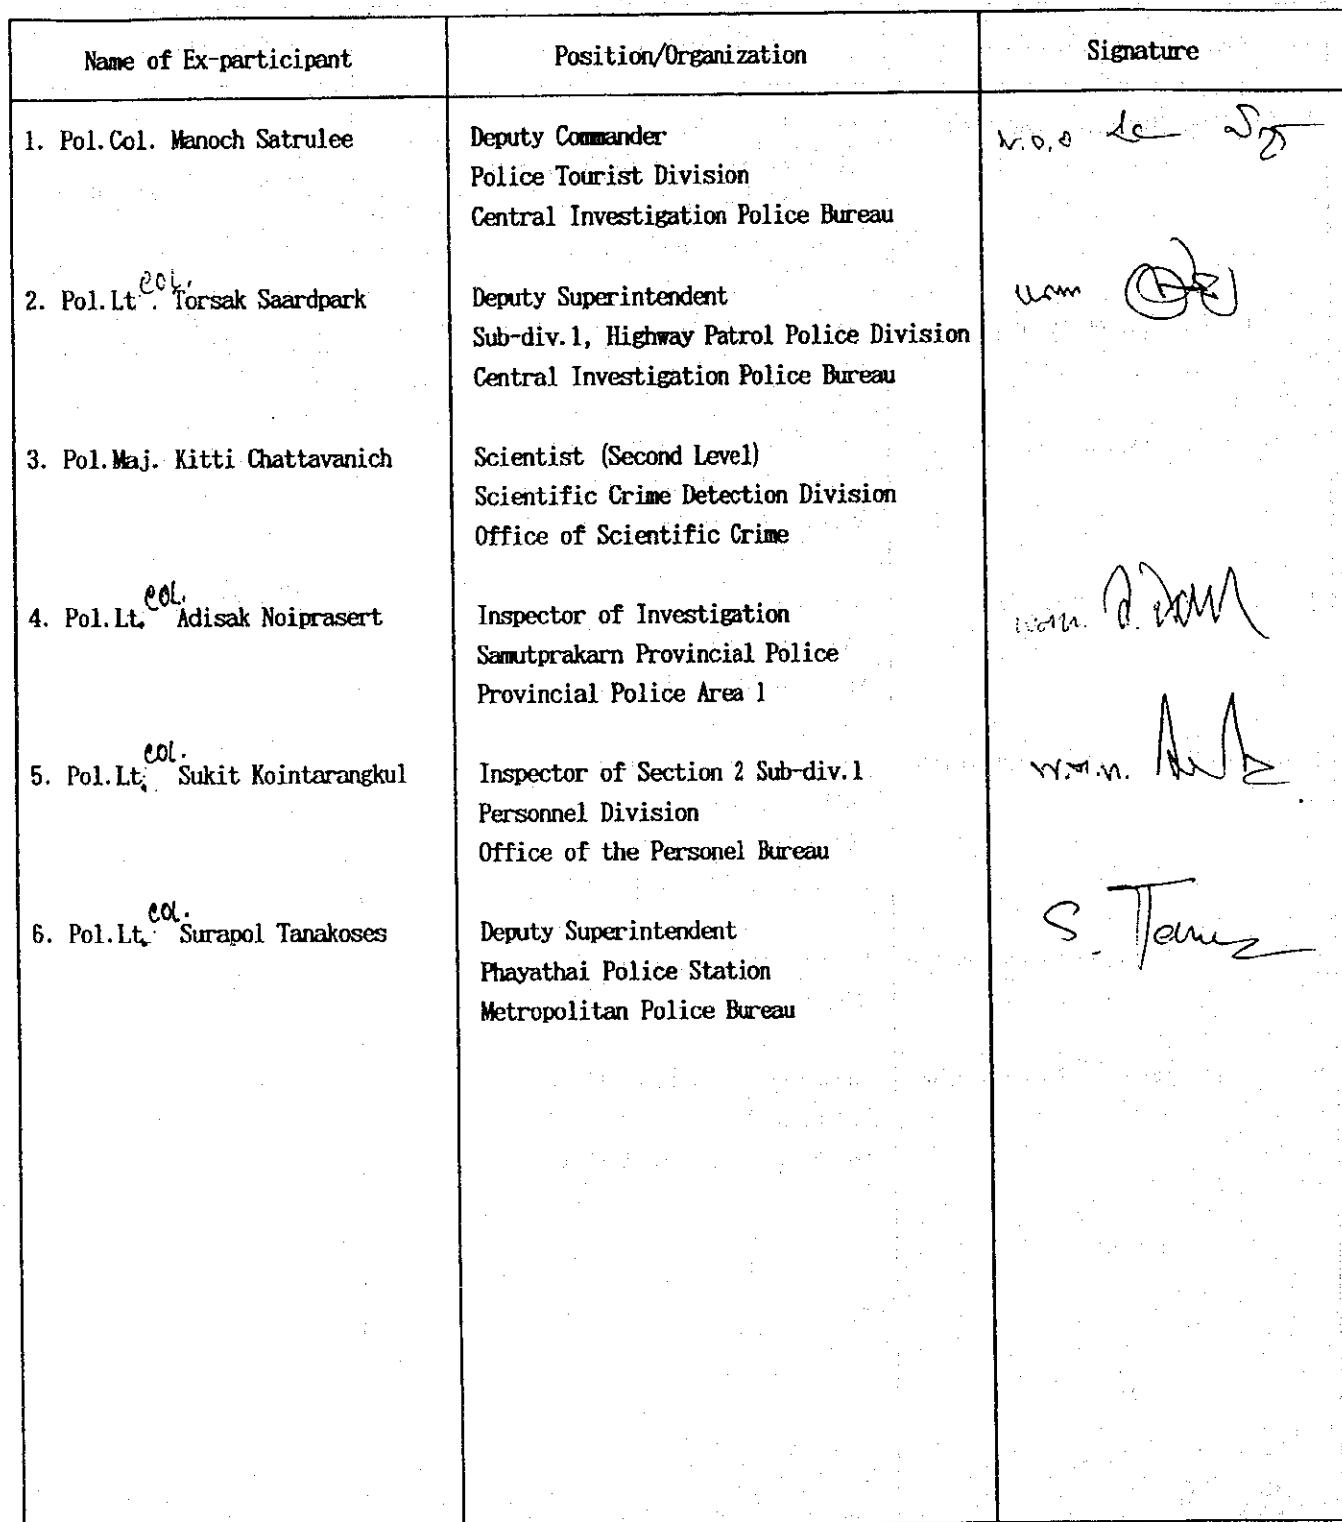 Name of Ex-participant Position/Organization Signature
1. Pol.Col. Manoch Satrulee Deputy Commander
Police Tourist Division
Central Investigation Police Bureau
2. Pol.Lt. col. Torsak Saardpark Deputy Superintendent
Sub-div.1, Highway Patrol Police Division
Central Investigation Police Bureau
3. Pol.Maj. Kitti Chattavanich Scientist (Second Level)
Scientific Crime Detection Division
Office of Scientific Crime
4. Pol.Lt. col. Adisak Noiprasert Inspector of Investigation
Samutprakarn Provincial Police
Provincial Police Area 1
5. Pol.Lt. col. Sukit Kointarangkul Inspector of Section 2 Sub-div.1
Personnel Division
Office of the Personel Bureau
6. Pol.Lt. col. Surapol Tanakoses Deputy Superintendent S.
Phayathai Police Station
Metropolitan Police Bureau